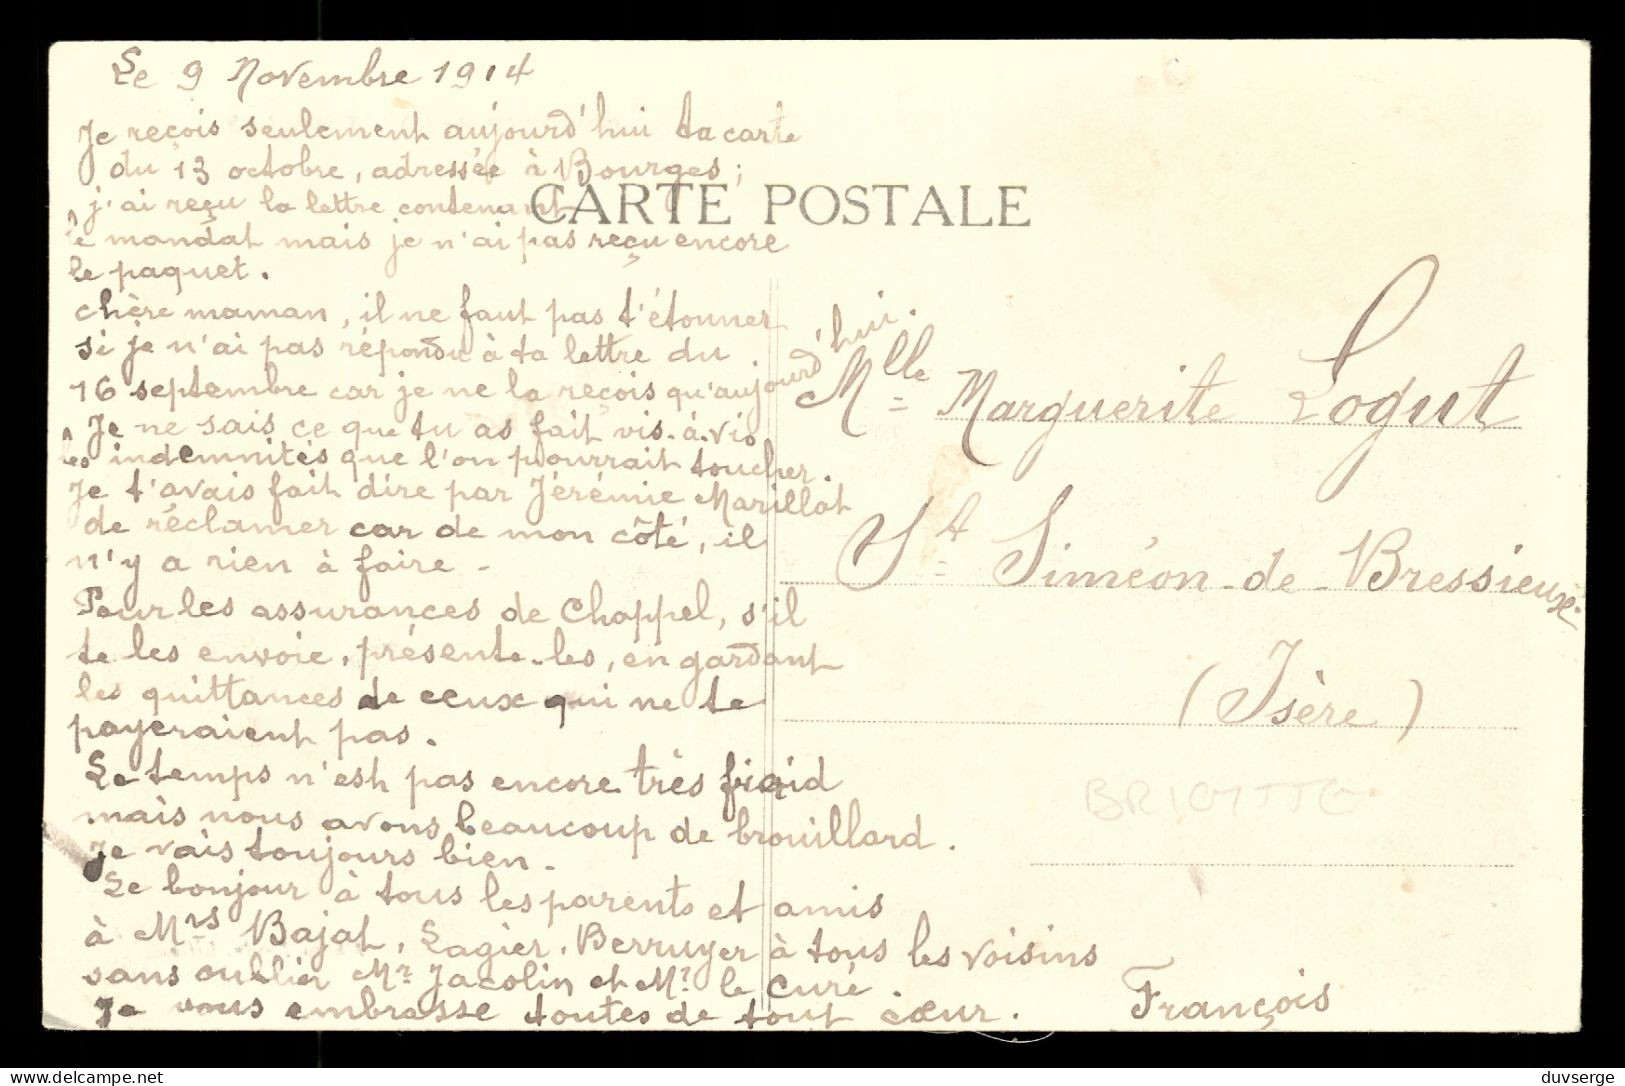 Le 9 Novembre 1914
Je reçois seulement aujourd'hui ta carte
du 13 octobre, adressée à Bourges;
j'ai reçu la lettre contenant
le mandat mais je n'ai pas reçu encore
le paquet.
chère maman, il ne faut pas t'étonner
si je n'ai pas répondu à ta lettre du
16 septembre car je ne la reçois qu'aujourd'hui.
Je ne sais ce que tu as fait vis-à-vis
les indemnités que l'on pourrait toucher.
Je t'avais fait dire par Jérémie Marillat
de réclamer car de mon côté, il
n'y a rien à faire -
Pour les assurances de Chappel, s'il
te les envoie, présente-les, en gardant
les quittances de ceux qui ne te
payeraient pas.
Le temps n'est pas encore très froid
mais nous avons beaucoup de brouillard.
Je vais toujours bien -
Le bonjour à tous les parents et amis
à Mrs Bajat, Lagier, Berruyer à tous les voisins
sans oublier Mr Jacolin et Mr le Curé.
Je vous embrasse toutes de tout cœur.
François
CARTE POSTALE
Mlle Marguerite Logut
St Siméon-de-Bressieux
(Isère)
delcampe.net
duvserge